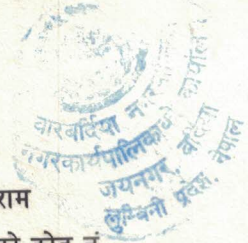 बारबर्दिया न
नगरकार्यपालिकाको कार्यालय
जयनगर, बर्दिया
लुम्बिनी प्रदेश, नेपाल
राम